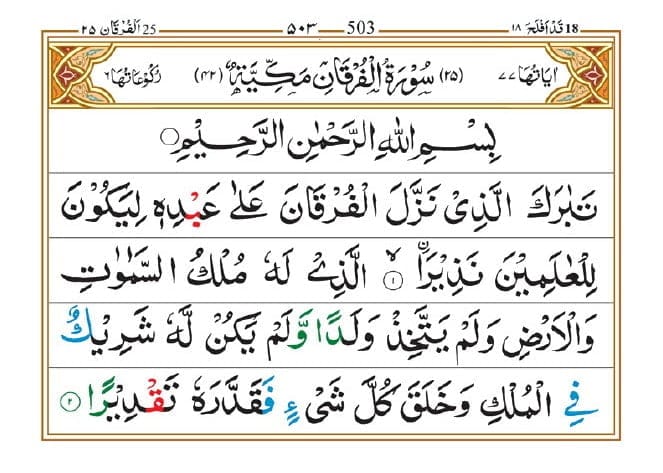 18 قد افلح ١٨ 503 ٥٠٣ 25 الفرقان ٢٥
اٰیاتها ٧٧ (٢٥) سُوْرَةُ الْفُرْقَانِ مَكِّيَّةٌ (٤٢) رُكُوْعَاتُهَا ٦
بِسْمِ اللّٰهِ الرَّحْمٰنِ الرَّحِيْمِ
تَبٰرَكَ الَّذِىْ نَزَّلَ الْفُرْقَانَ عَلٰى عَبْدِهٖ لِيَكُوْنَ
لِلْعٰلَمِيْنَ نَذِيْرًاۙ ١ الَّذِىْ لَهٗ مُلْكُ السَّمٰوٰتِ
وَالْاَرْضِ وَلَمْ يَتَّخِذْ وَلَدًا وَّلَمْ يَكُنْ لَّهٗ شَرِيْكٌ
فِى الْمُلْكِ وَخَلَقَ كُلَّ شَىْءٍ فَقَدَّرَهٗ تَقْدِيْرًا ٢